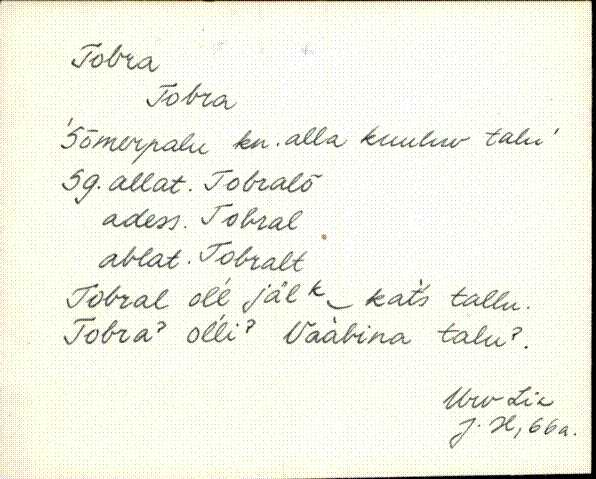 Tobra
Tobra
'Sõmerpalu kn. alla kuuluv talu'
Sg. allat. Tobralõ
adess. Tobral
ablat. Tobralt
Tobral oĺĺ jäl k‿kat́s tallu.
Tobra? oĺli? Vaabina talu?.
Urv
66a.